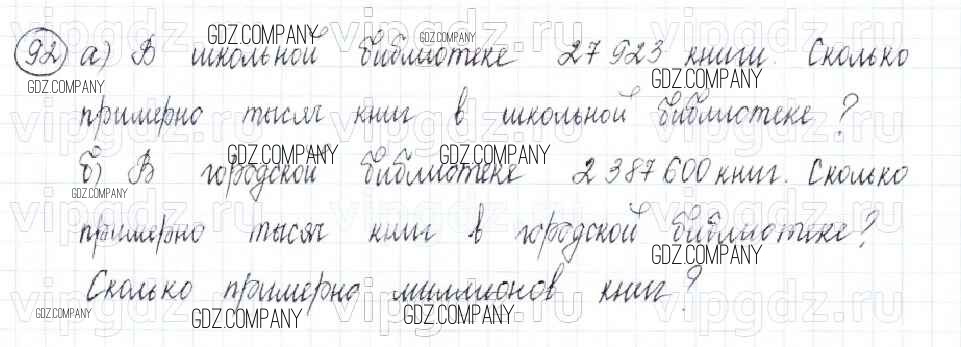 92) а) В школьной библиотеке 27 923 книги. Сколько
примерно тысяч книг в школьной библиотеке?
б) В городской библиотеке 2 387 600 книг. Сколько
примерно тысяч книг в городской библиотеке?
Сколько примерно миллионов книг?
GDZ.COMPANY
GDZ.COMPANY
GDZ.COMPANY
GDZ.COMPANY
GDZ.COMPANY
GDZ.COMPANY
GDZ.COMPANY
GDZ.COMPANY
GDZ.COMPANY
GDZ.COMPANY
GDZ.COMPANY
vipgdz.ru